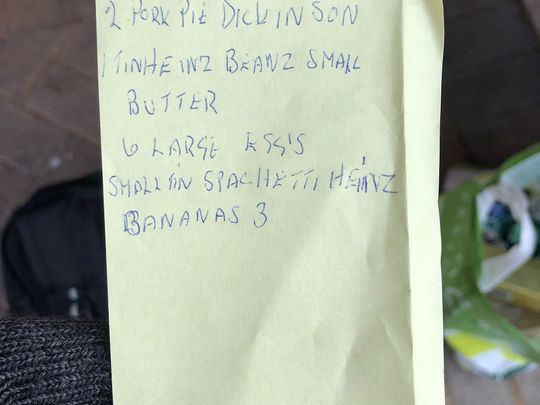 2 PORK PIE DICKINSON
1 TIN HEINZ BEANZ SMALL
BUTTER
6 LARGE EGG'S
SMALL TIN SPAGHETTI HEINZ
BANANAS 3